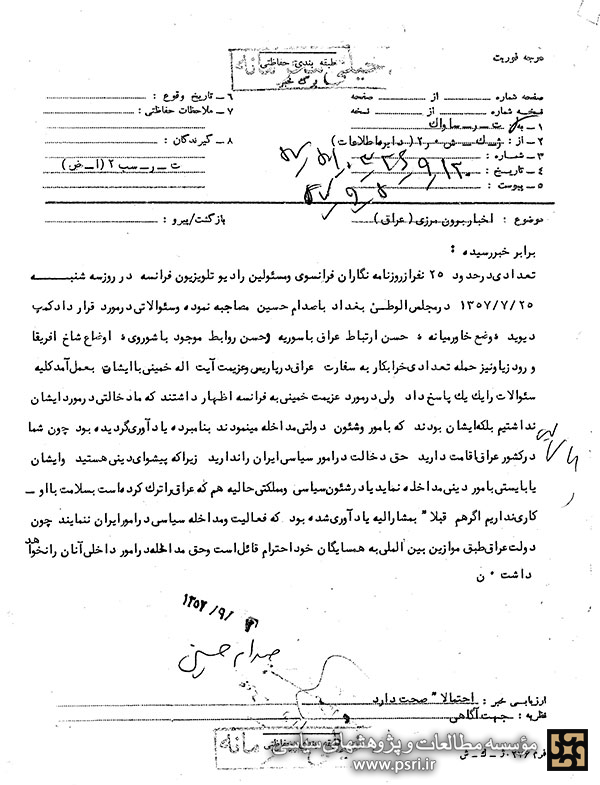 خیلی محرمانه
درجه فوریت
طبقه بندی حفاظتی
برگ خبر
صفحه شماره از صفحه
نسخه شماره از نسخه
۱ـ به : ت ـ ر ـ ساواك
۲ـ از : ژ ـ ك ـ ش ر۲ (دایره اطلاعات)
۳ـ شماره :
۴ـ تاریخ :
۵ـ پیوست :
۶ـ تاریخ وقوع :
۷ـ ملاحظات حفاظتی :
۸ـ گیرندگان :
ت ـ ر ـ س ب ۲ (ا ـ ض)
موضوع : اخبار برون مرزی (عراق) بازگشت/پیرو :
برابر خبر رسیده :
تعدادی در حدود ۲۵ نفر از روزنامه نگاران فرانسوی ومسئولین رادیو تلویزیون فرانسه در روز سه شنبه
۱۳۵۷/۷/۲۵ در مجلس الوطنی بغداد با صدام حسین مصاحبه نموده وسئوالاتی در مورد قرار داد کمپ
دیوید ه وضع خاورمیانه ه حسن ارتباط عراق با سوریه وحسن روابط موجود با شوروی ه اوضاع شاخ افریقا
و رودزیا ونیز حمله تعدادی خرابکار به سفارت عراق در پاریس وعزیمت آیت اله خمینی با ایشان بعمل آمد کلیه
سئوالات را یك یك پاسخ داد ولی در مورد عزیمت خمینی به فرانسه اظهار داشتند که ما دخالتی در مورد ایشان
نداشتیم بلکه ایشان بودند که بامور وشئون دولتی مداخله مینمودند بنامبرده یادآوری گردیده بود چون شما
در کشور عراق اقامت دارید حق دخالت در امور سیاسی ایران را ندارید زیرا که پیشوای دینی هستید وایشان
یا بایستی بامور دینی مداخله نماید یا در شئون سیاسی ومملکتی حالیه هم که عراق را ترك کرده است بسلامت با او ـ
کاری نداریم اگر هم قبلا" بمشارالیه یادآوری شده بود که فعالیت ومداخله سیاسی در امور ایران ننمایند چون
دولت عراق طبق موازین بین المللی به همسایگان خود احترام قائل است وحق مداخله در امور داخلی آنان را نخواهد
داشت . ن
۱۳۵۷/۹/
صدام حسین
ارزیابی خبر : احتمالا" صحت دارد
نظریه : جهت آگاهی
طبقه بندی حفاظتی
خیلی محرمانه
مؤسسه مطالعات و پژوهشهای سیاسی
www.psri.ir